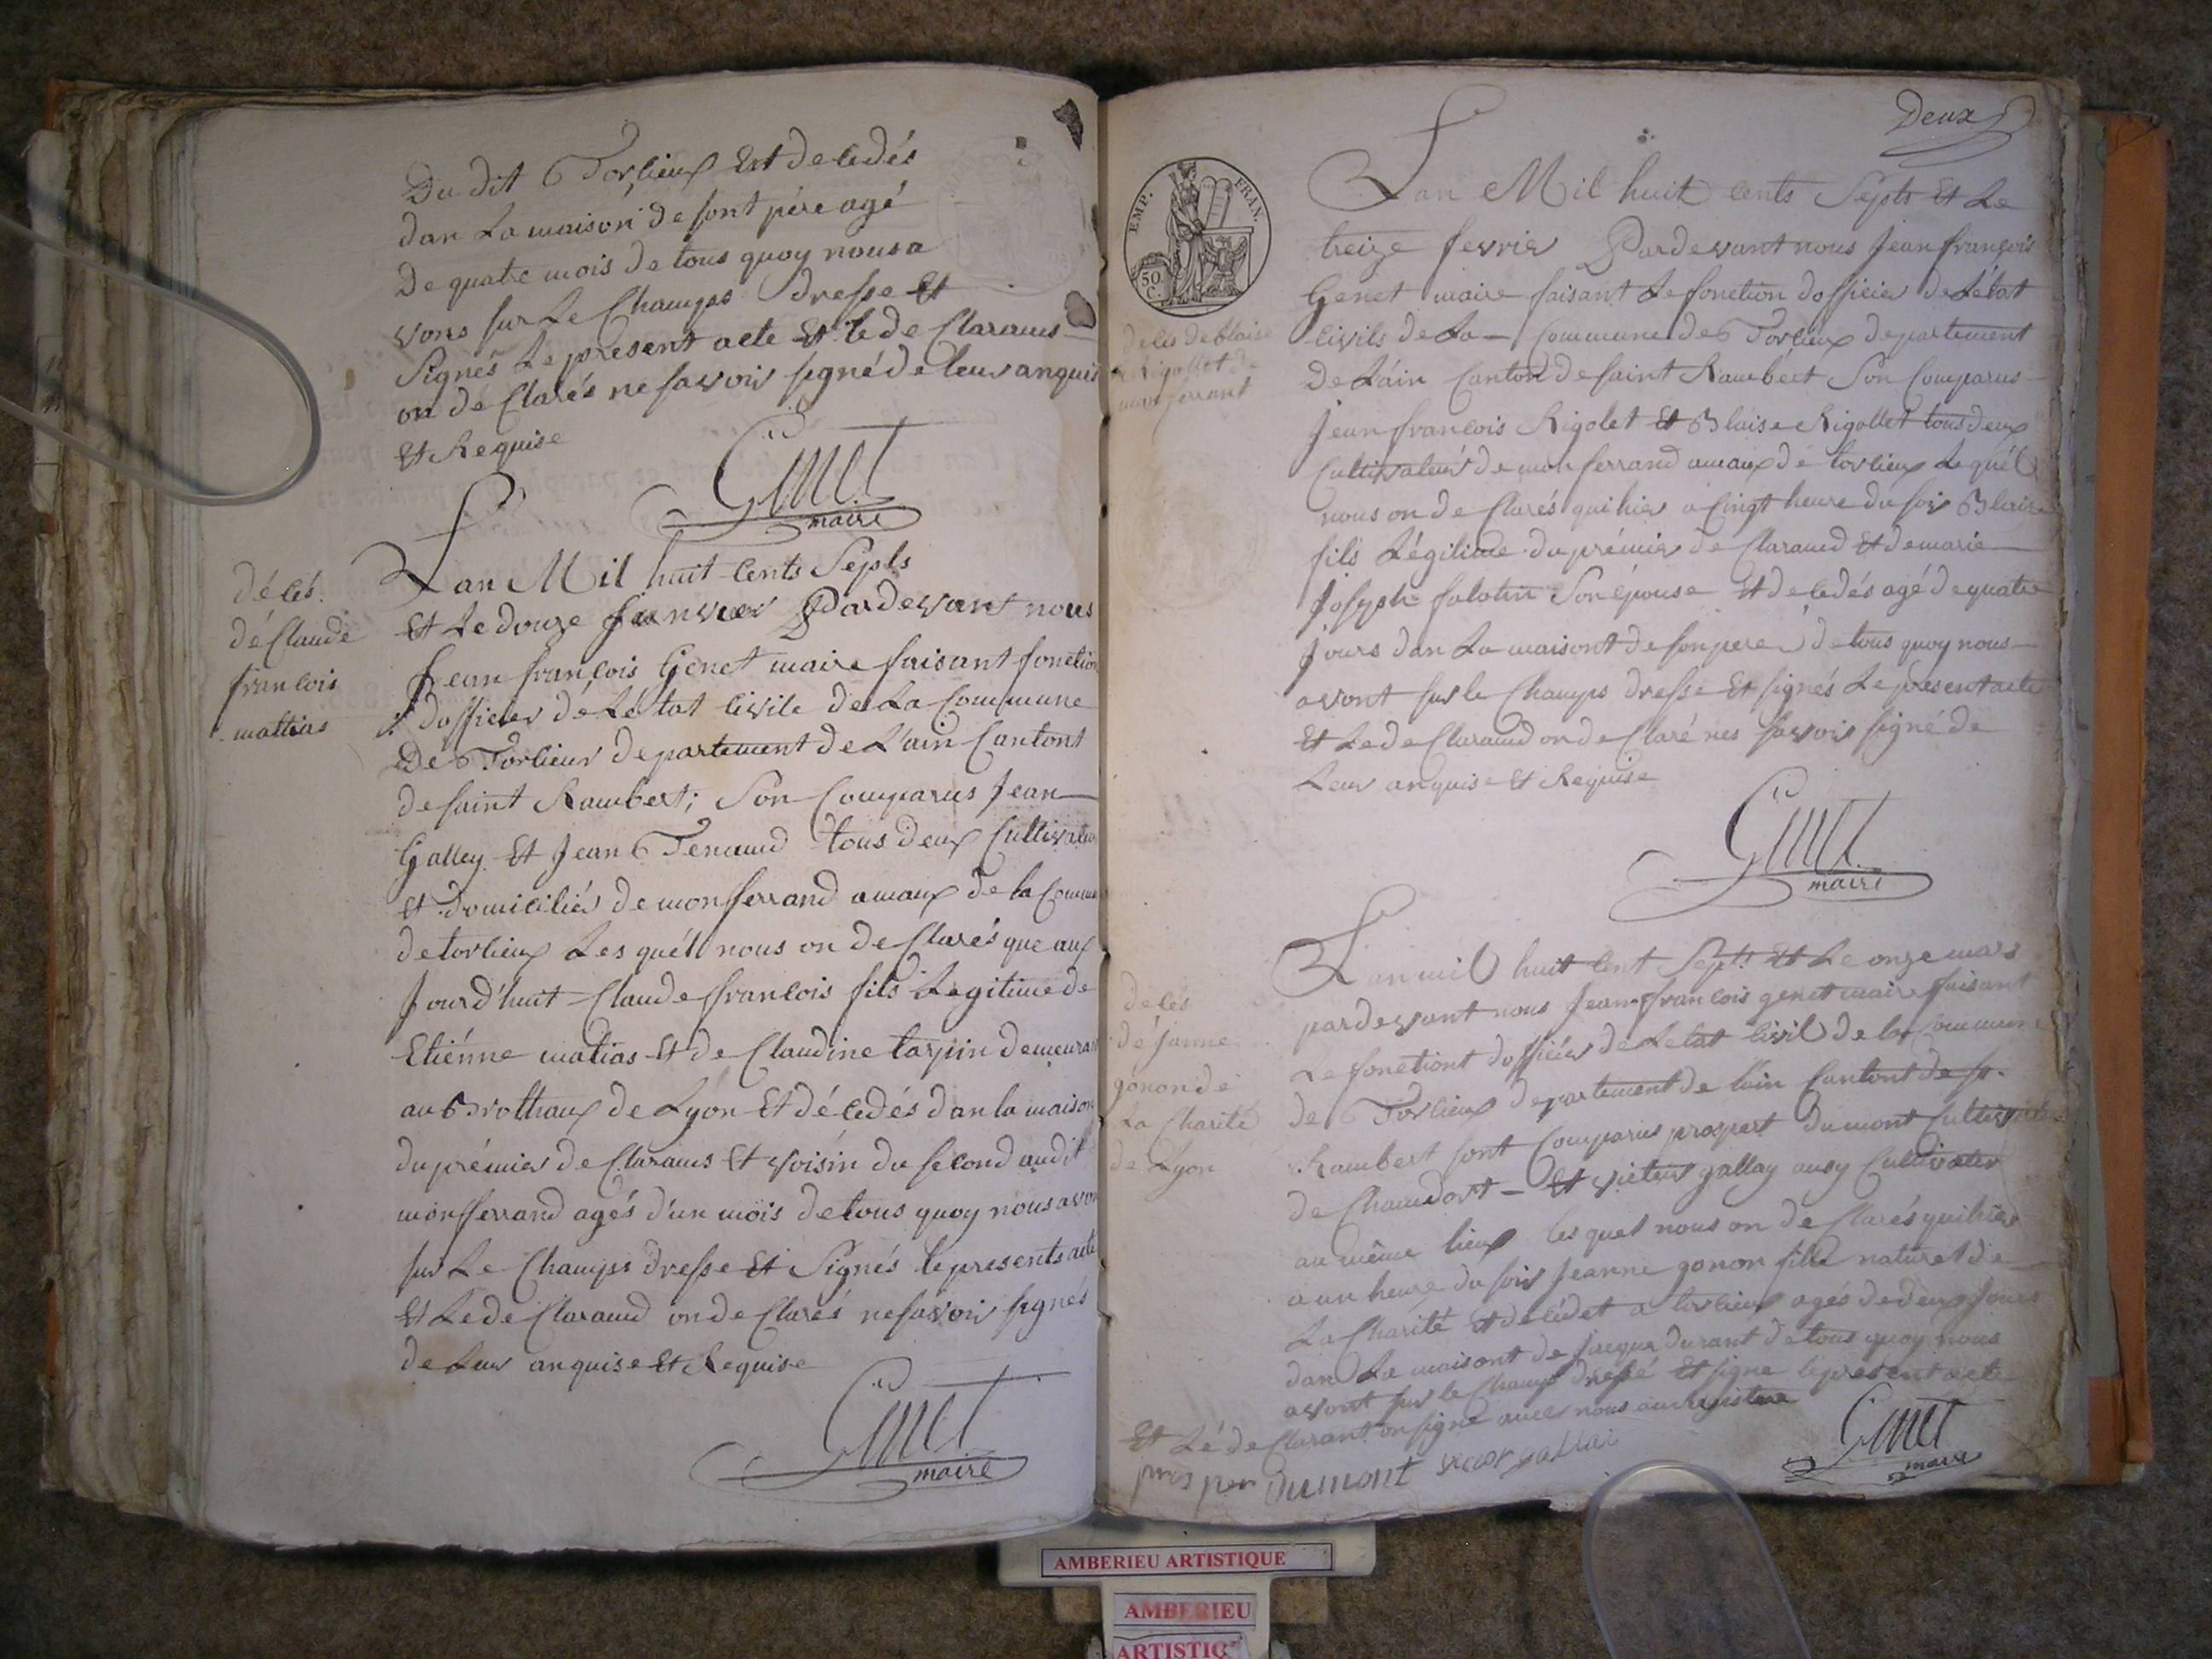 Du dit Torlieux Est de cedés
dan La maison de font pére agé
De quatre mois de tous quoy nous a
vons sur Le Champs dresse Et
Signés Le present acte Et le de Clarams
on dé Clarés ne savoir signé de leur anquis
Et Requise
Genet
maire
décés
dé Claude
francois
mattias
Lan Mil huit Cents Septs
Et Le douze Janvier Pardevant nous
Jean françois Genet maire faisant fonction
dofficier dé Lé tat Civile de La Commune
De Torlieux departement de L'ain Cantont
de saint Rambert; Son Comparus Jean
Galley Et Jean Tenaud tous deux Cultivateu
Et domiciliér de monferrand amaux de la Commu
de torlieux Les quél nous on de Clarés que aux
Jourd'huit Claude francois fils Legitime de
Etiénne matias Et de Claudine tarpin demeuran
au Brottaux de Lyon Et dé cedés dan la maison
du prémier de Clarams Et voisin du second au dit
monferrand agés d'un mois de tous quoy nous avon
sur Le Champs dresse Et Signés le presents acte
Et Le de Claraud on de Clarés ne savoir signés
de Leur anquise Et Requise
Genet
maire
Deux
EMP. FRAN.
50 C.
décés de blaise
Rigollet de
monferrant
Lan Mil huit Cents Septs Et Le
treize fevrier Pardevant nous Jean françois
Genet maire faisant Le fonction dofficier de Létat
Civils de La Commune de Torlieux departement
De L'áin Canton de saint Rambért Son Comparus
Jean francois Rigolet Et Blaise Rigollet tous deux
Cultivateur de monferrand amaux de torlieux Le quél
nous on de Clarés qui hier a Cingt heure du soir Blaise
fils Légitime du prémier de Claraud Et de marie
Josyph falatin Son épouse Et de cedés agé de quatre
Jours dan La maisont de son pere de tous quoy nous
avont sur le Champs dresse Et signés Le present acte
Et Le de Claraud on de Claré nes savoir signé de
Leur anquise Et Requise
Genet
maire
décés
dé Janne
gonon dé
La Charité
de Lyon
Lan mil huit Cent Septs Et Le onze mars
pardevant nous Jean francois genet maire faisant
Le fonctiont dofficiér de Letat Civil de la Commune
de Torlieux departement de lain Cantont de St.
Rambert sont Comparus prospert Dumont Cultivateur
de Chamdort Et victeur gallay ausy Cultivateur
au même lieux les quel nous on de Clarés qui hier
a un heure du soir Jeanne gonon fille naturel de
La Charité Et decédet a torlieux agés de deux Jours
dan La maisont de Jacque durant de tous quoy nous
avont sur le Champ dressé Et signe le present acte
Et Lé de Clarant on signe avec nous
prosper Dumont victor gallai
Genet
maire
AMBERIEU ARTISTIQUE
AMBERIEU
ARTISTIQ